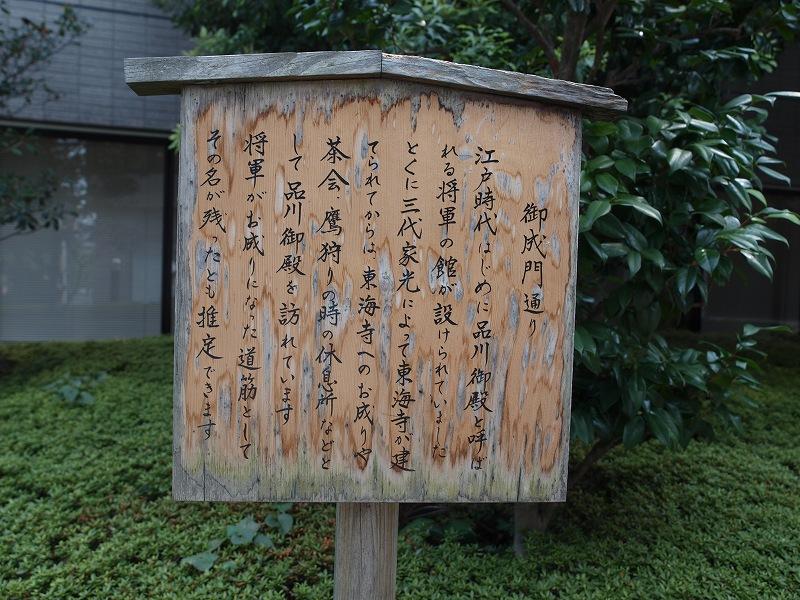 御成門通り
江戸時代はじめに品川御殿と呼ば
れる将軍の館が設けられていました
とくに三代家光によって東海寺が建
てられてからは、東海寺へのお成りや
茶会、鷹狩りの時の休息所などと
して品川御殿を訪れています
将軍がお成りになった道筋として
その名が残ったとも推定できます